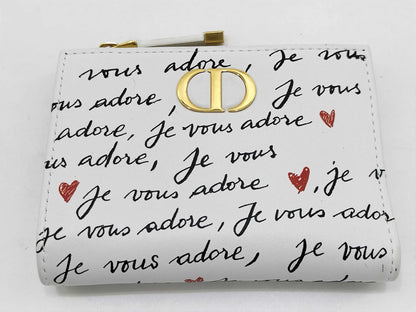 vous adore, je vous
vous adore, Je vous
CD
adore, Je vous adore
vous adore, Je vous
Je vous adore, je v
je vous adore, Je vous ador
Je vous adore, Je vous
je vous adore